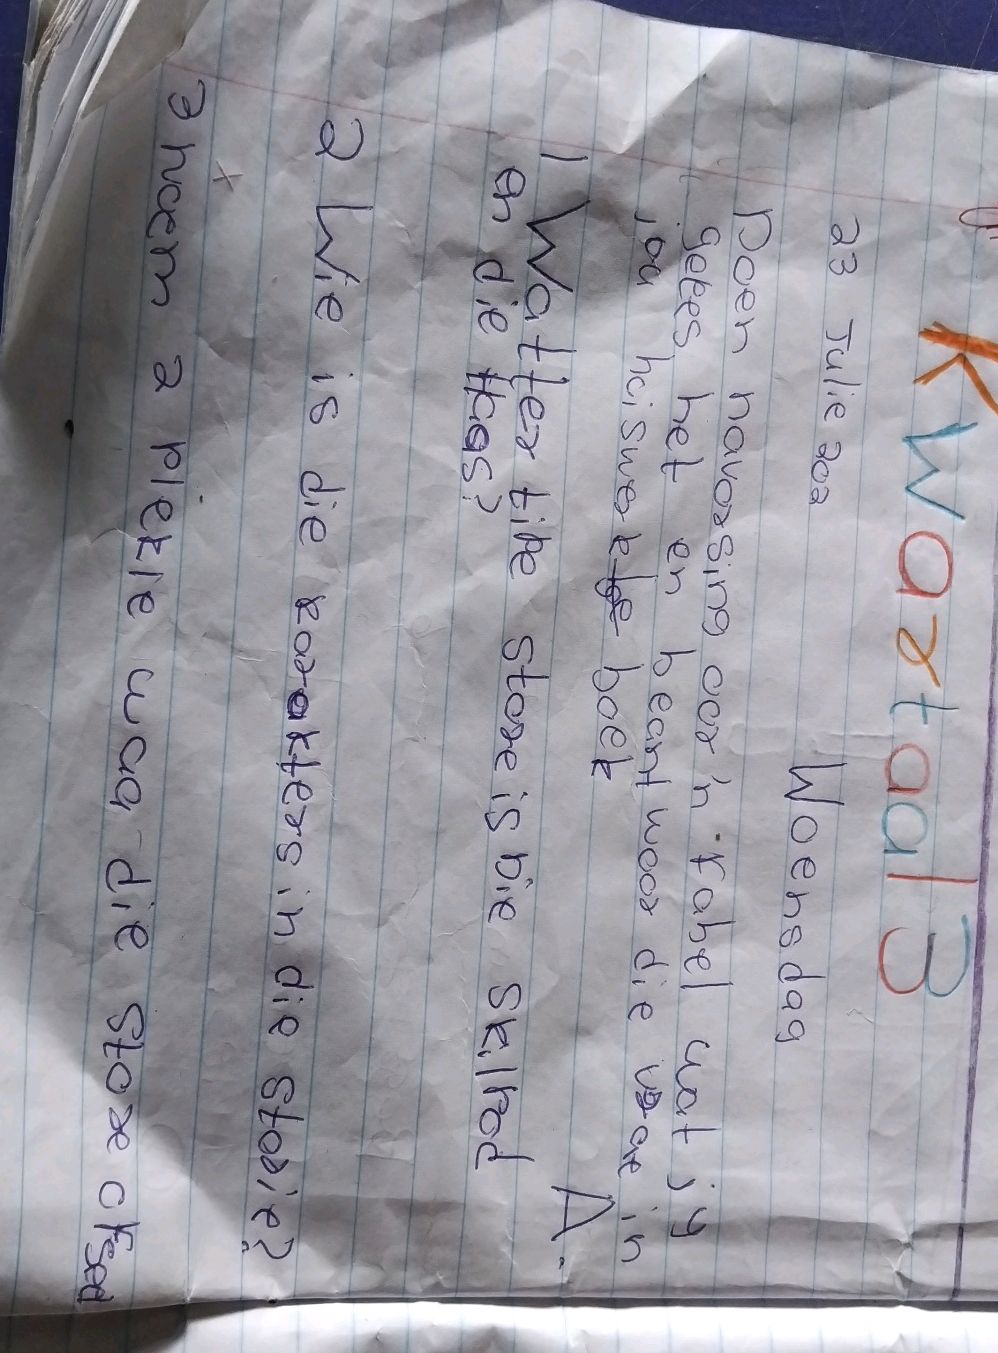 Kwartaal 3
23 Julie 202 Woensdag
Doen navorsing oor 'n fabel wat jy
gelees het en beantwoor die vrae in
jou huiswerk boek
1 Watter tipe storie is Die skilpad A.
en die Haas?
2 Wie is die karakters in die storie?
3 Noem 2 plekke waar die stor